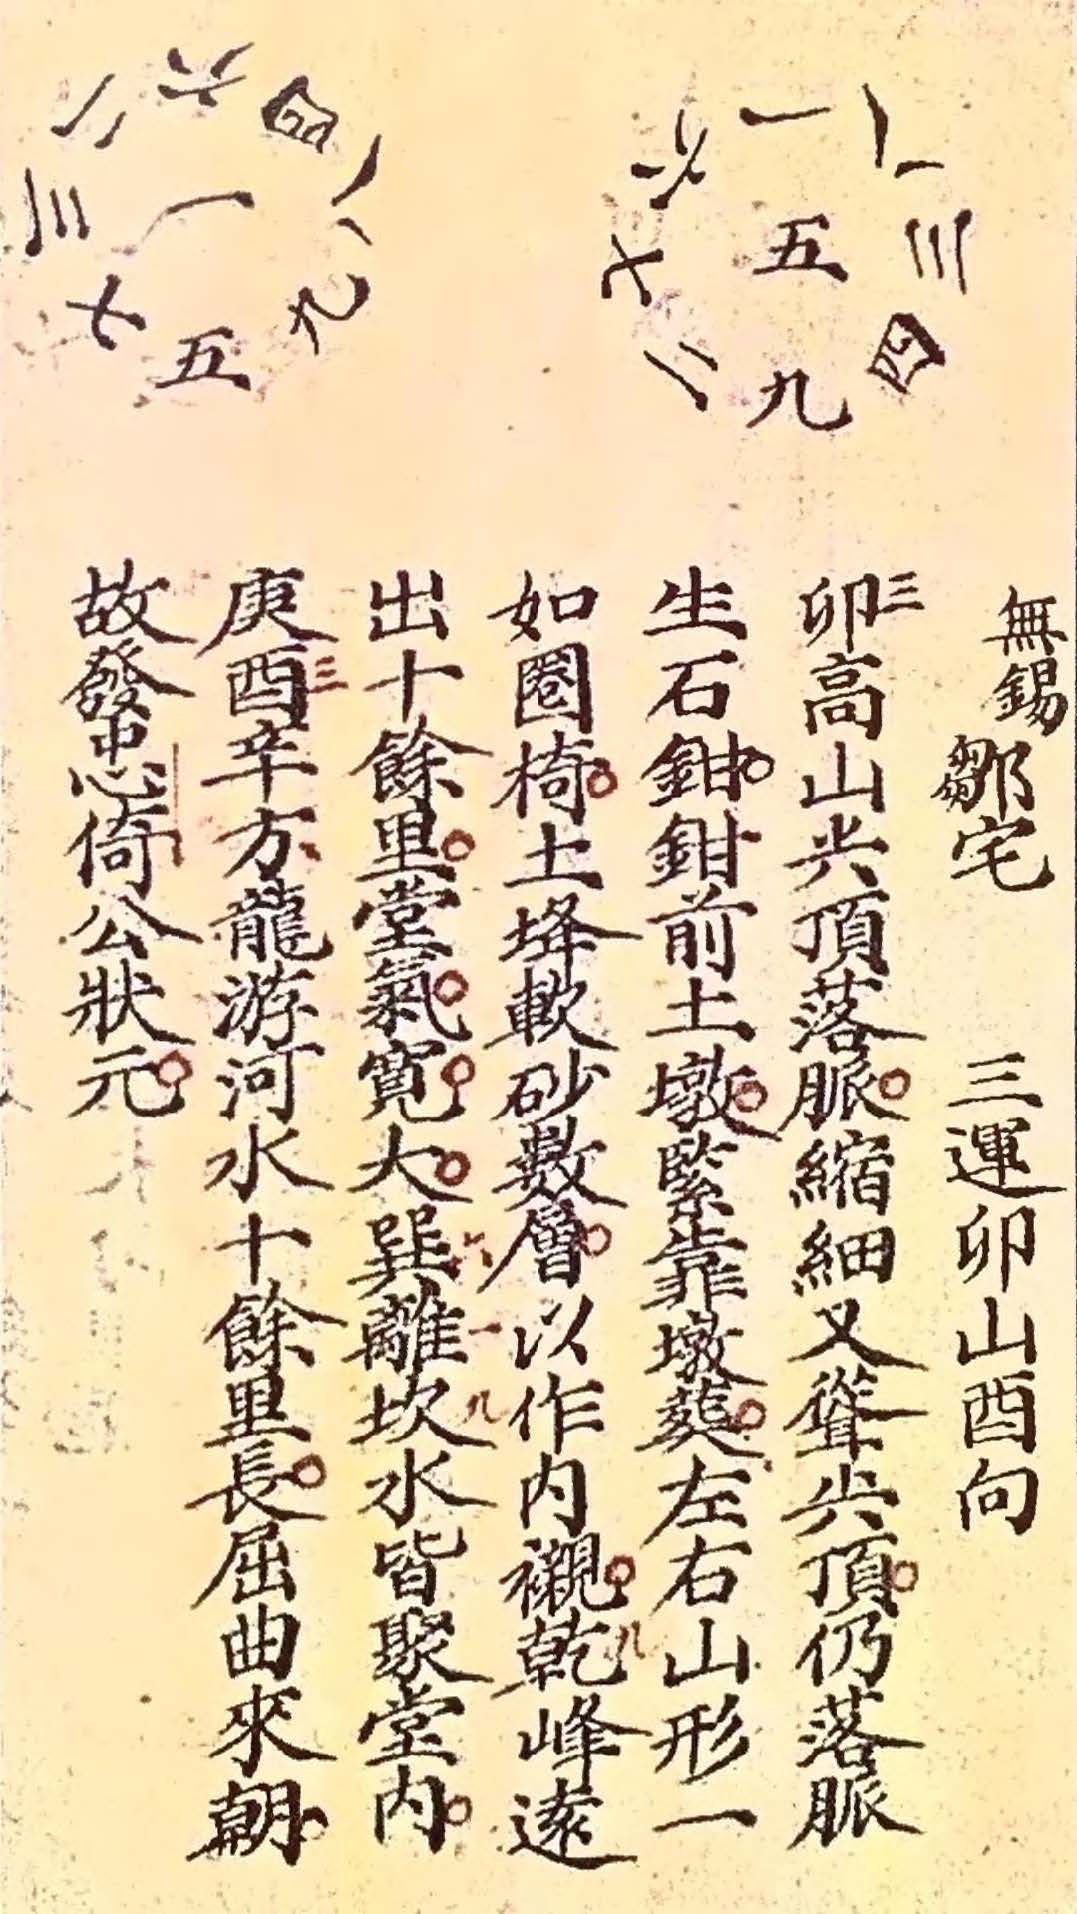 八一六
三五七
四九二
四六二
八一三
九五七
無錫鄒宅 三運卯山酉向
卯三高山尖頂落脈縮細又聳尖頂仍落脈
生石鉗鉗前土墩緊靠墩葬左右山形一
如圈椅土埄軟砂數層以作内襯乾八峰遠
出十餘里堂氣寬大巽六離一坎九水皆聚堂内
庚酉三辛方龍游河水十餘里長屈曲來朝
故發忠倚公狀元